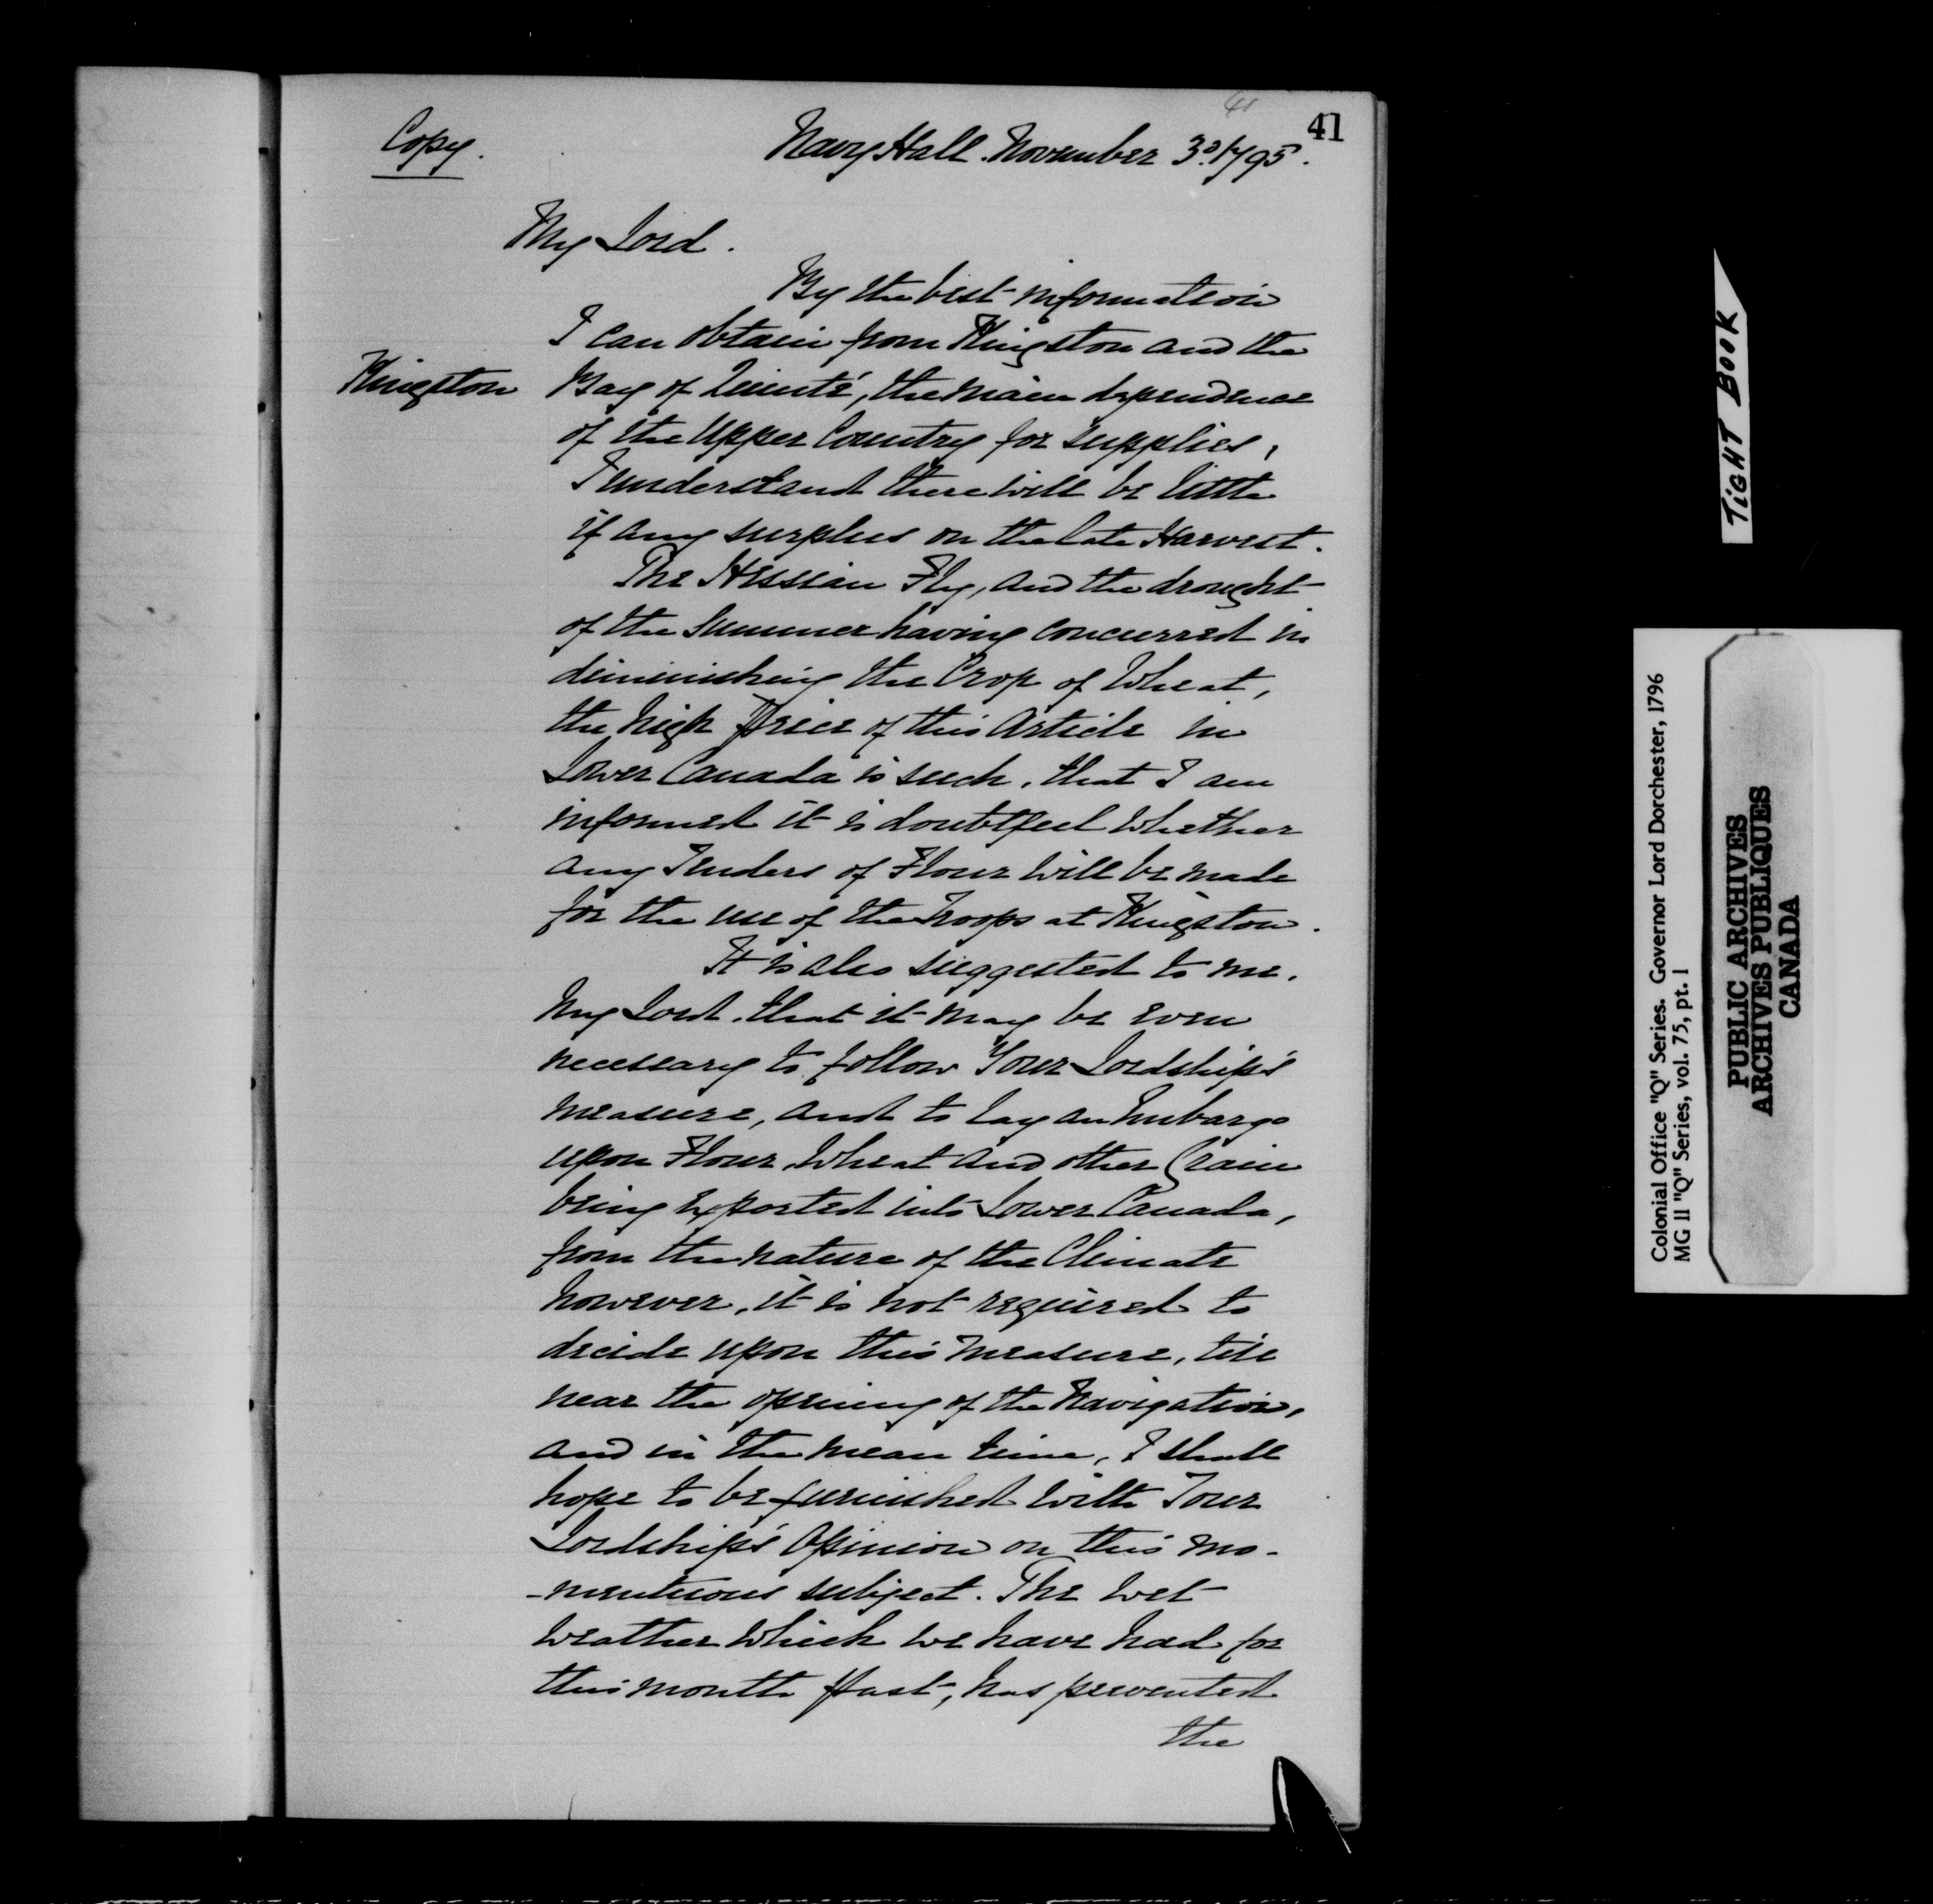 41
41
Copy.
Navy Hall. November 3d. 1795.
My Lord.
By the best information
I can obtain from Kingston and the
Kingston
Bay of Quinté, the main dependence
of the Upper Country for supplies,
I understand there will be little
if any surplus on the late Harvest.
The Hessian Fly, and the drought
of the Summer having concurred in
diminishing the Crop of Wheat,
the high Price of this Article in
Lower Canada is such, that I am
informed it is doubtful whether
any Tenders of Flour will be made
for the use of the Troops at Kingston.
It is also suggested to me,
My Lord, that it may be even
necessary to follow Your Lordship's
measure, and to lay an Embargo
upon Flour, Wheat and other Grain
being exported into Lower Canada,
from the nature of the Climate
however, it is not required to
decide upon this measure, till
near the opening of the Navigation,
and in the mean time, I shall
hope to be furnished with Your
Lordship's Opinion on this mo-
-mentuous subject. The wet
weather which we have had for
this month past, has prevented
the
TIGHT BOOK
Colonial Office "Q" Series. Governor Lord Dorchester, 1796
MG 11 "Q" Series, vol. 75, pt. 1
PUBLIC ARCHIVES
ARCHIVES PUBLIQUES
CANADA